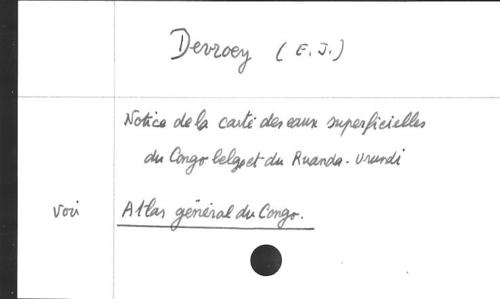 Devroey (E.J.)
Notice de la carte des eaux superficielles
du Congo belge et du Ruanda-Urundi
voir Atlas général du Congo.